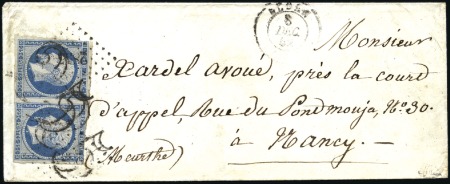 8
Monsieur
Xardel avoué, près la court
d'appel, Rue du Pondmouja, No. 30.
à Nancy.
(Meurthe)